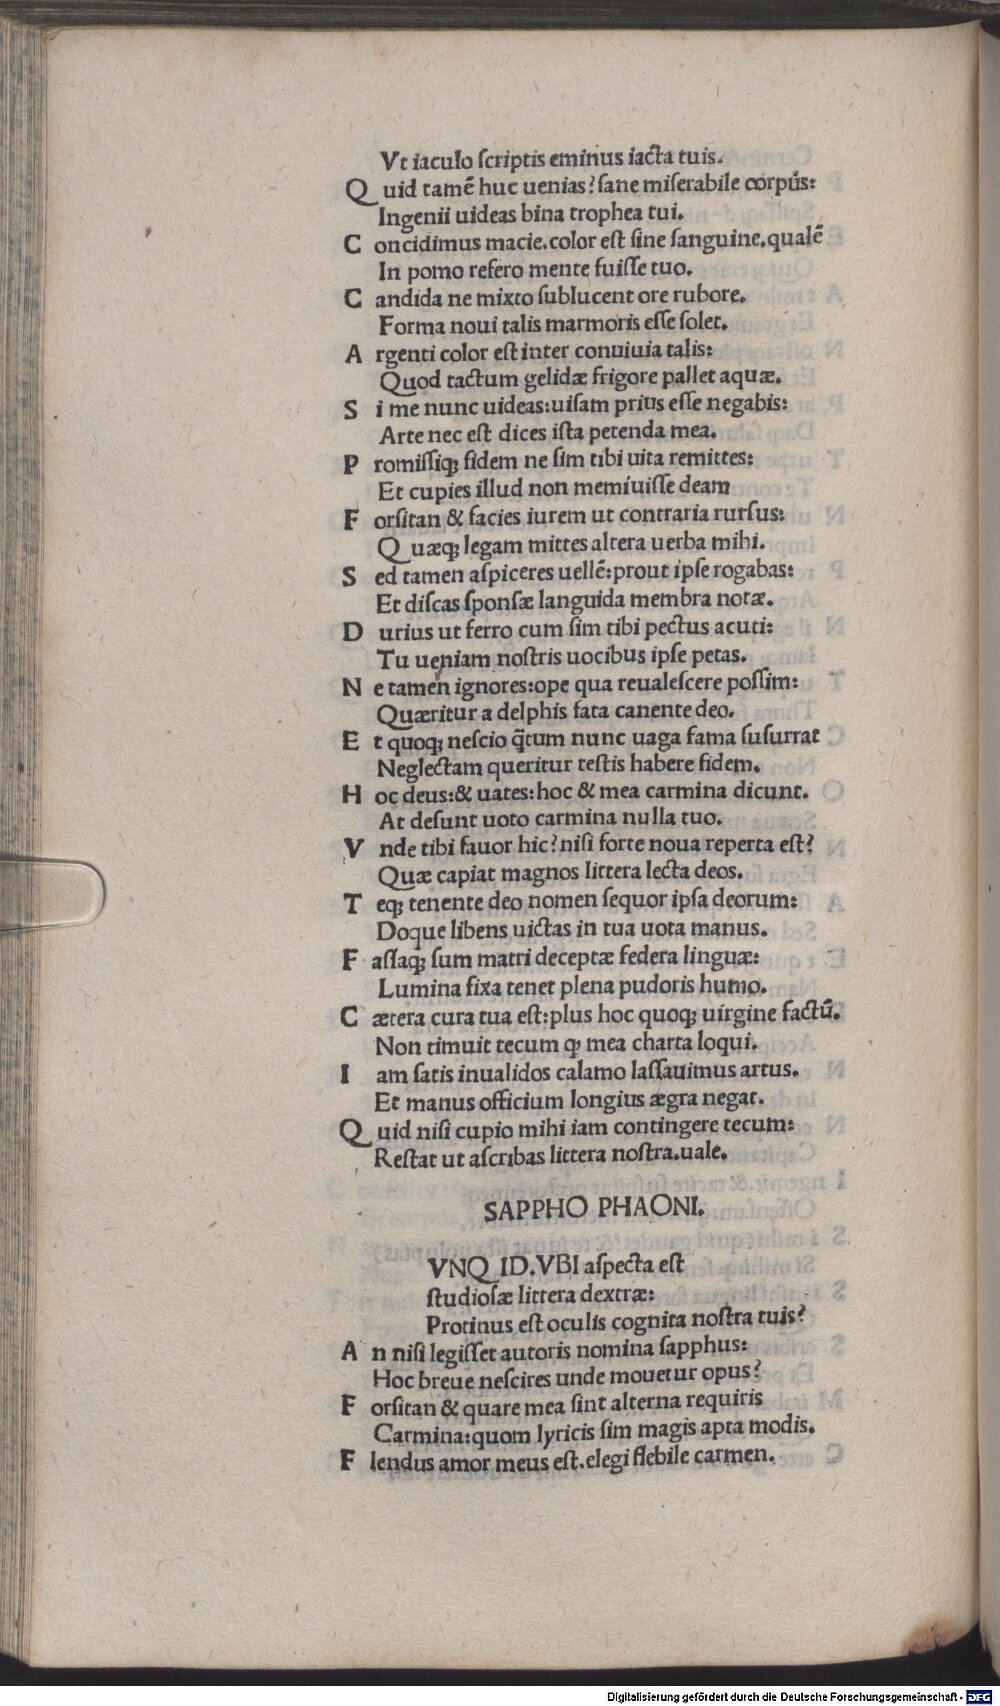 Vt iaculo scriptis eminus iacta tuis.
Quid tamē huc uenias? sane miserabile corpus̄:
Ingenii uideas bina trophea tui.
Concidimus macie.color est sine sanguine.qualē
In pomo refero mente fuisse tuo.
Candida ne mixto sublucent ore rubore.
Forma noui talis marmoris esse solet.
Argenti color est inter conuiuia talis:
Quod tactum gelidæ frigore pallet aquæ.
Si me nunc uideas:uisam prius esse negabis:
Arte nec est dices ista petenda mea.
Promissiqꝫ fidem ne sim tibi uita remittes:
Et cupies illud non memiuisse deam
Forsitan & facies iurem ut contraria rursus:
Quæqꝫ legam mittes altera uerba mihi.
Sed tamen aspiceres uellē:prout ipse rogabas:
Et discas sponsæ languida membra notæ.
Durius ut ferro cum sim tibi pectus acuti:
Tu ueniam nostris uocibus ipse petas.
Ne tamen ignores:ope qua reualescere possim:
Quæritur a delphis fata canente deo.
Et quoqꝫ nescio q̄tum nunc uaga fama susurrat
Neglectam queritur testis habere fidem.
Hoc deus:& uates:hoc & mea carmina dicunt.
At desunt uoto carmina nulla tuo.
Vnde tibi fauor hic? nisi forte noua reperta est?
Quæ capiat magnos littera lecta deos.
Teqꝫ tenente deo nomen sequor ipsa deorum:
Doque libens uictas in tua uota manus.
Fassaqꝫ sum matri deceptæ federa linguæ:
Lumina fixa tenet plena pudoris humo.
Cætera cura tua est:plus hoc quoqꝫ uirgine factū.
Non timuit tecum ꝙ mea charta loqui.
Iam satis inualidos calamo lassauimus artus.
Et manus officium longius ægra negat.
Quid nisi cupio mihi iam contingere tecum:
Restat ut ascribas littera nostra.uale.
SAPPHO PHAONI.
VNQ ID.VBI aspecta est
studiosæ littera dextræ:
Protinus est oculis cognita nostra tuis?
An nisi legisset autoris nomina sapphus:
Hoc breue nescires unde mouetur opus?
Forsitan & quare mea sint alterna requiris
Carmina:quom lyricis sim magis apta modis.
Flendus amor meus est.elegi flebile carmen.
Digitalisierung gefördert durch die Deutsche Forschungsgemeinschaft - DFG